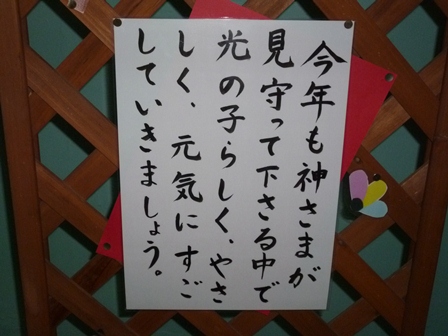 今年も神さまが
見守って下さる中で
光の子らしく、やさ
しく、元気にすご
していきましょう。